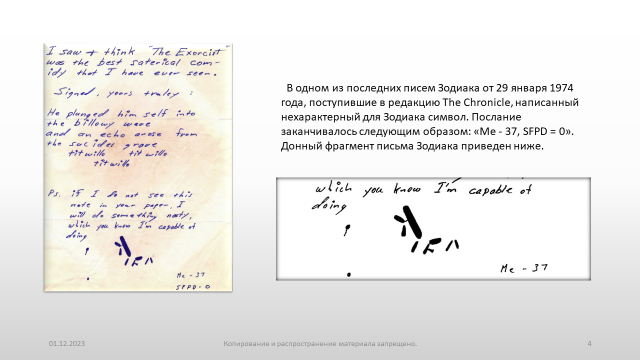 I saw + think "The Exorcist"
was the best saterical com-
idy that I have ever seen.
Signed, yours truley :
He plunged him self into
the billowy wave
and an echo arose from
the sucides grave
titwillo titwillo
titwillo
Ps. if I do not see this
note in your paper, I
will do something nasty,
which you know I'm capable of
doing
Me - 37
SFPD - 0
В одном из последних писем Зодиака от 29 января 1974
года, поступившие в редакцию The Chronicle, написанный
нехарактерный для Зодиака символ. Послание
заканчивалось следующим образом: «Me - 37, SFPD = 0».
Донный фрагмент письма Зодиака приведен ниже.
which you know I'm capable of
doing
Me - 37
01.12.2023
Копирование и распространение материала запрещено.
4